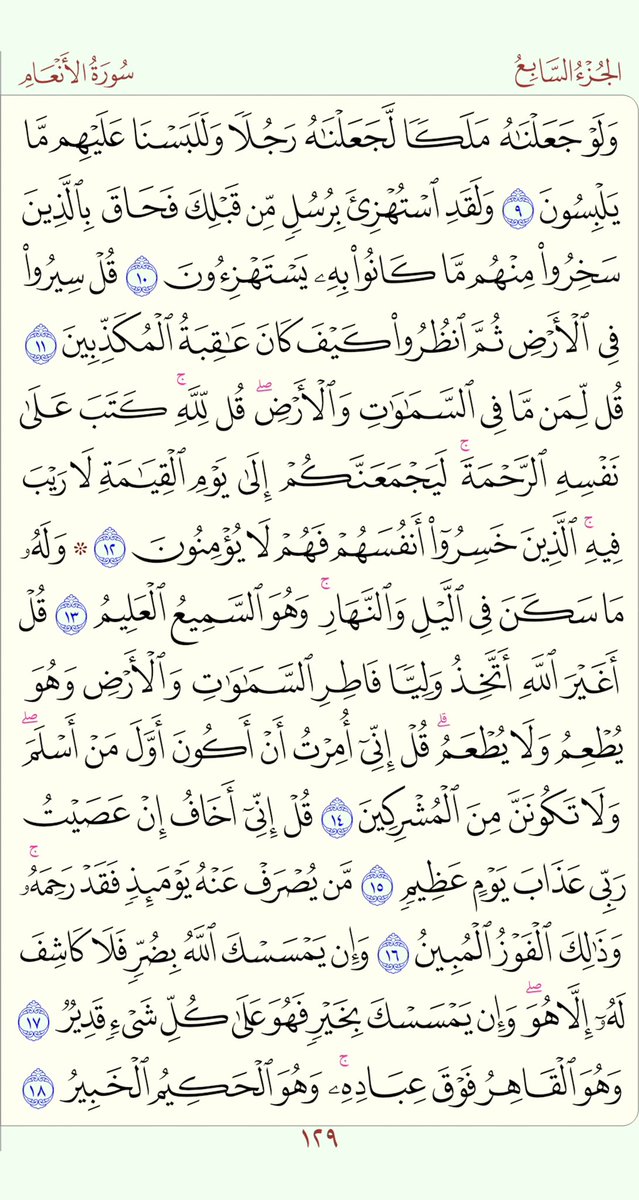 الجُزْءُ السَّابِعُ
سُورَةُ الأَنْعَامِ
وَلَوۡ جَعَلۡنَٰهُ مَلَكٗا لَّجَعَلۡنَٰهُ رَجُلٗا وَلَلَبَسۡنَا عَلَيۡهِم مَّا
يَلۡبِسُونَ ٩ وَلَقَدِ ٱسۡتُهۡزِئَ بِرُسُلٖ مِّن قَبۡلِكَ فَحَاقَ بِٱلَّذِينَ
سَخِرُواْ مِنۡهُم مَّا كَانُواْ بِهِۦ يَسۡتَهۡزِءُونَ ١٠ قُلۡ سِيرُواْ
فِي ٱلۡأَرۡضِ ثُمَّ ٱنظُرُواْ كَيۡفَ كَانَ عَٰقِبَةُ ٱلۡمُكَذِّبِينَ ١١
قُل لِّمَن مَّا فِي ٱلسَّمَٰوَٰتِ وَٱلۡأَرۡضِۖ قُل لِّلَّهِۚ كَتَبَ عَلَىٰ
نَفۡسِهِ ٱلرَّحۡمَةَۚ لَيَجۡمَعَنَّكُمۡ إِلَىٰ يَوۡمِ ٱلۡقِيَٰمَةِ لَا رَيۡبَ
فِيهِۚ ٱلَّذِينَ خَسِرُوٓاْ أَنفُسَهُمۡ فَهُمۡ لَا يُؤۡمِنُونَ ١٢ * وَلَهُۥ
مَا سَكَنَ فِي ٱلَّيۡلِ وَٱلنَّهَارِۚ وَهُوَ ٱلسَّمِيعُ ٱلۡعَلِيمُ ١٣ قُلۡ
أَغَيۡرَ ٱللَّهِ أَتَّخِذُ وَلِيّٗا فَاطِرِ ٱلسَّمَٰوَٰتِ وَٱلۡأَرۡضِ وَهُوَ
يُطۡعِمُ وَلَا يُطۡعَمُۗ قُلۡ إِنِّيٓ أُمِرۡتُ أَنۡ أَكُونَ أَوَّلَ مَنۡ أَسۡلَمَۖ
وَلَا تَكُونَنَّ مِنَ ٱلۡمُشۡرِكِينَ ١٤ قُلۡ إِنِّيٓ أَخَافُ إِنۡ عَصَيۡتُ
رَبِّي عَذَابَ يَوۡمٍ عَظِيمٖ ١٥ مَّن يُصۡرَفۡ عَنۡهُ يَوۡمَئِذٖ فَقَدۡ رَحِمَهُۥۚ
وَذَٰلِكَ ٱلۡفَوۡزُ ٱلۡمُبِينُ ١٦ وَإِن يَمۡسَسۡكَ ٱللَّهُ بِضُرّٖ فَلَا كَاشِفَ
لَهُۥٓ إِلَّا هُوَۖ وَإِن يَمۡسَسۡكَ بِخَيۡرٖ فَهُوَ عَلَىٰ كُلِّ شَيۡءٖ قَدِيرٞ ١٧
وَهُوَ ٱلۡقَاهِرُ فَوۡقَ عِبَادِهِۦۚ وَهُوَ ٱلۡحَكِيمُ ٱلۡخَبِيرُ ١٨
١٢٩